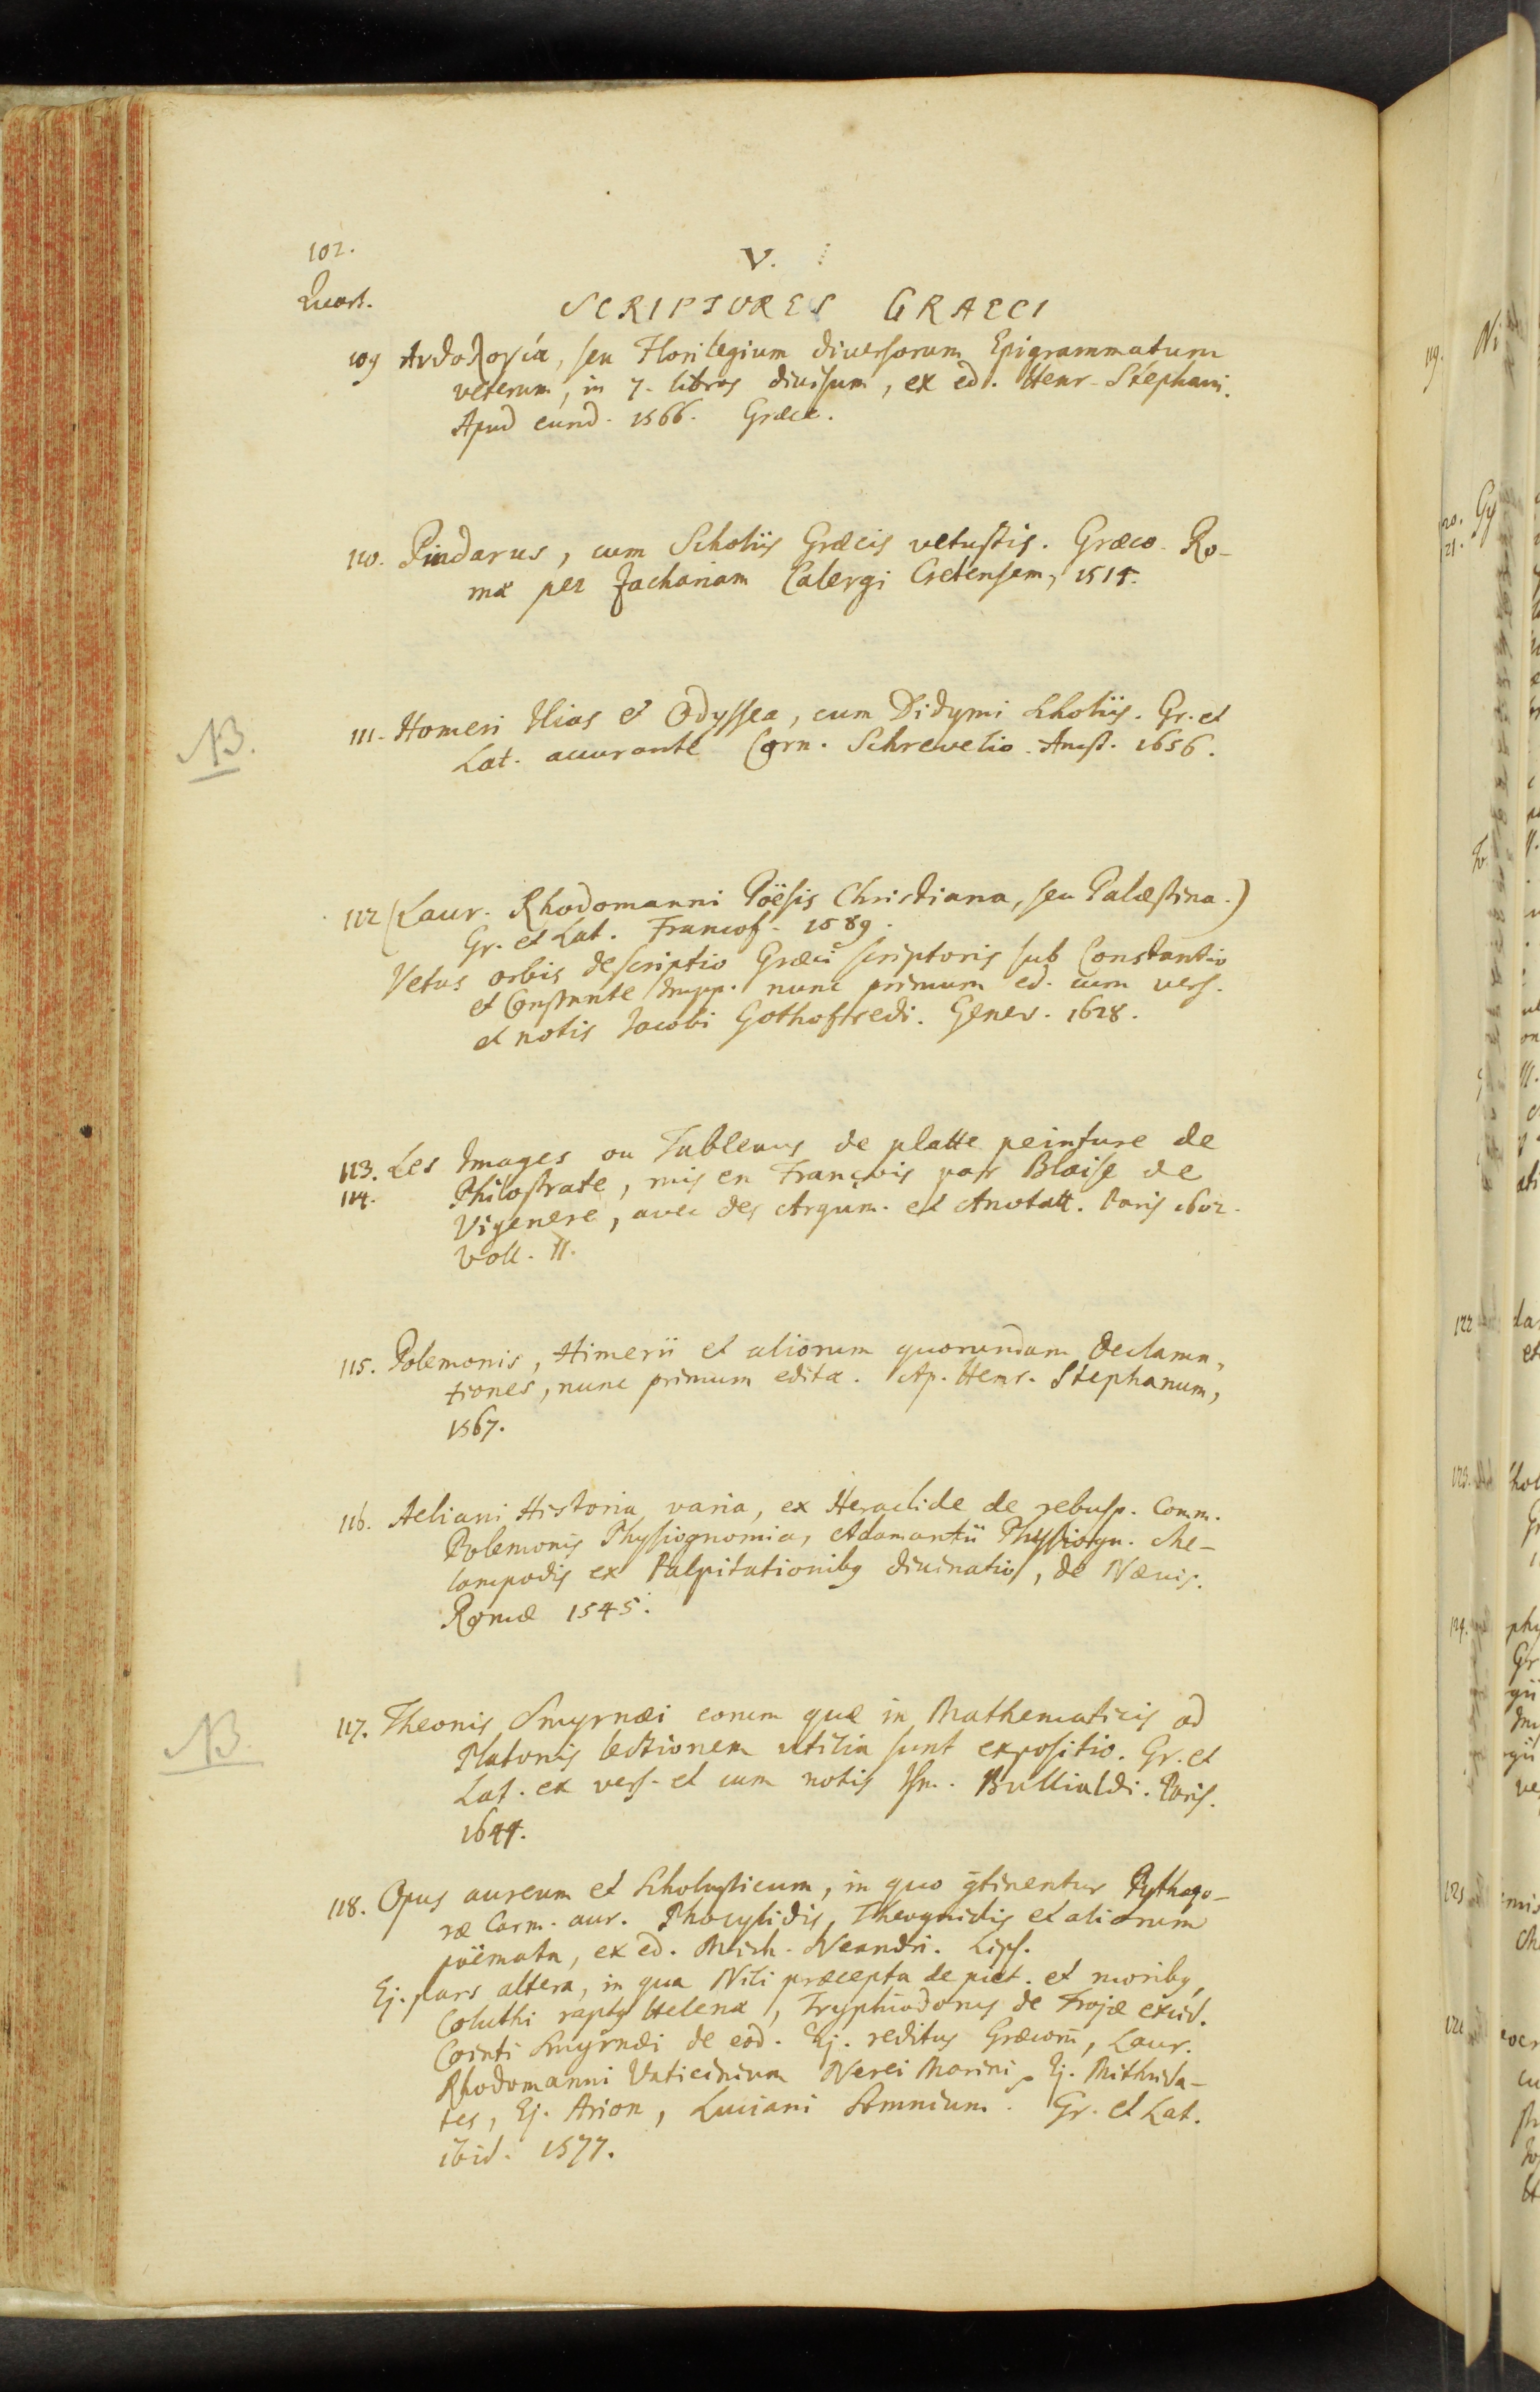 102.
V.
Quart.
SCRIPTORES GRAECI
109 Ανθολογία, seu Florilegium diversorum Epigrammatum
veterum, in 7. libros divisum, ex ed. Henr. Stephani.
Apud eund. 1566. Græce.
110. Pindarus, cum Scholiis Græcis vetustis. Græce. Ro-
mæ per Zachariam Calergi Cretensem, 1515.
NB.
111. Homeri Ilias et Odyssea, cum Didymi Scholiis. Gr. et
Lat. accurante Corn. Schrevelio. Amst. 1656.
112 (Laur. Rhodomanni Poësis Christiana, seu Palæstina.)
Gr. et Lat. Francof. 1589.
Vetus orbis descriptio Græci scriptoris sub Constantio
et Constante Impp. nunc primum ed. cum vers.
et notis Jacobi Gothofredi. Genev. 1628.
113. Les Images ou Tableaus de platte peinture de
114. Philostrate, mis en François par Blaise de
Vigenere, avec des Argum. et Anotatt. Paris 1602.
Voll. II.
115. Polemonis, Himerii et aliorum quorundam Declama-
tiones, nunc primum editæ. Ap. Henr. Stephanum,
1567.
116. Aeliani Historia varia, ex Heraclide de rebusp. Comm.
Polemonis Physiognomia, Adamantii Physiogn. Me-
lampodis ex Palpitationibg divinatio, de Nævis.
Romæ 1545.
NB.
117. Theonis Smyrnæi eorum quæ in Mathematicis ad
Platonis lectionem utilia sunt expositio. Gr. et
Lat. ex vers. et cum notis Ism. Bullialdi. Paris.
1644.
118. Opus aureum et Scholasticum, in quo gtinentur Pythago-
ræ Carm. aur. Phocylidis, Theognidis et aliorum
poëmata, ex ed. Mich. Neandri. Lips.
Ej. pars altera, in qua Nili præcepta de piet. et moribg,
Coluthi raptg Helenæ, Tryphiodorus de Trojæ excid.
Cointi Smyrnæi de eod. Ej. reditus Græcorū, Laur.
Rhodomanni Vaticinium Nerei Marini, Ej. Mithrida-
tes, Ej. Arion, Luciani Somnium. Gr. et Lat.
ibid. 1577.